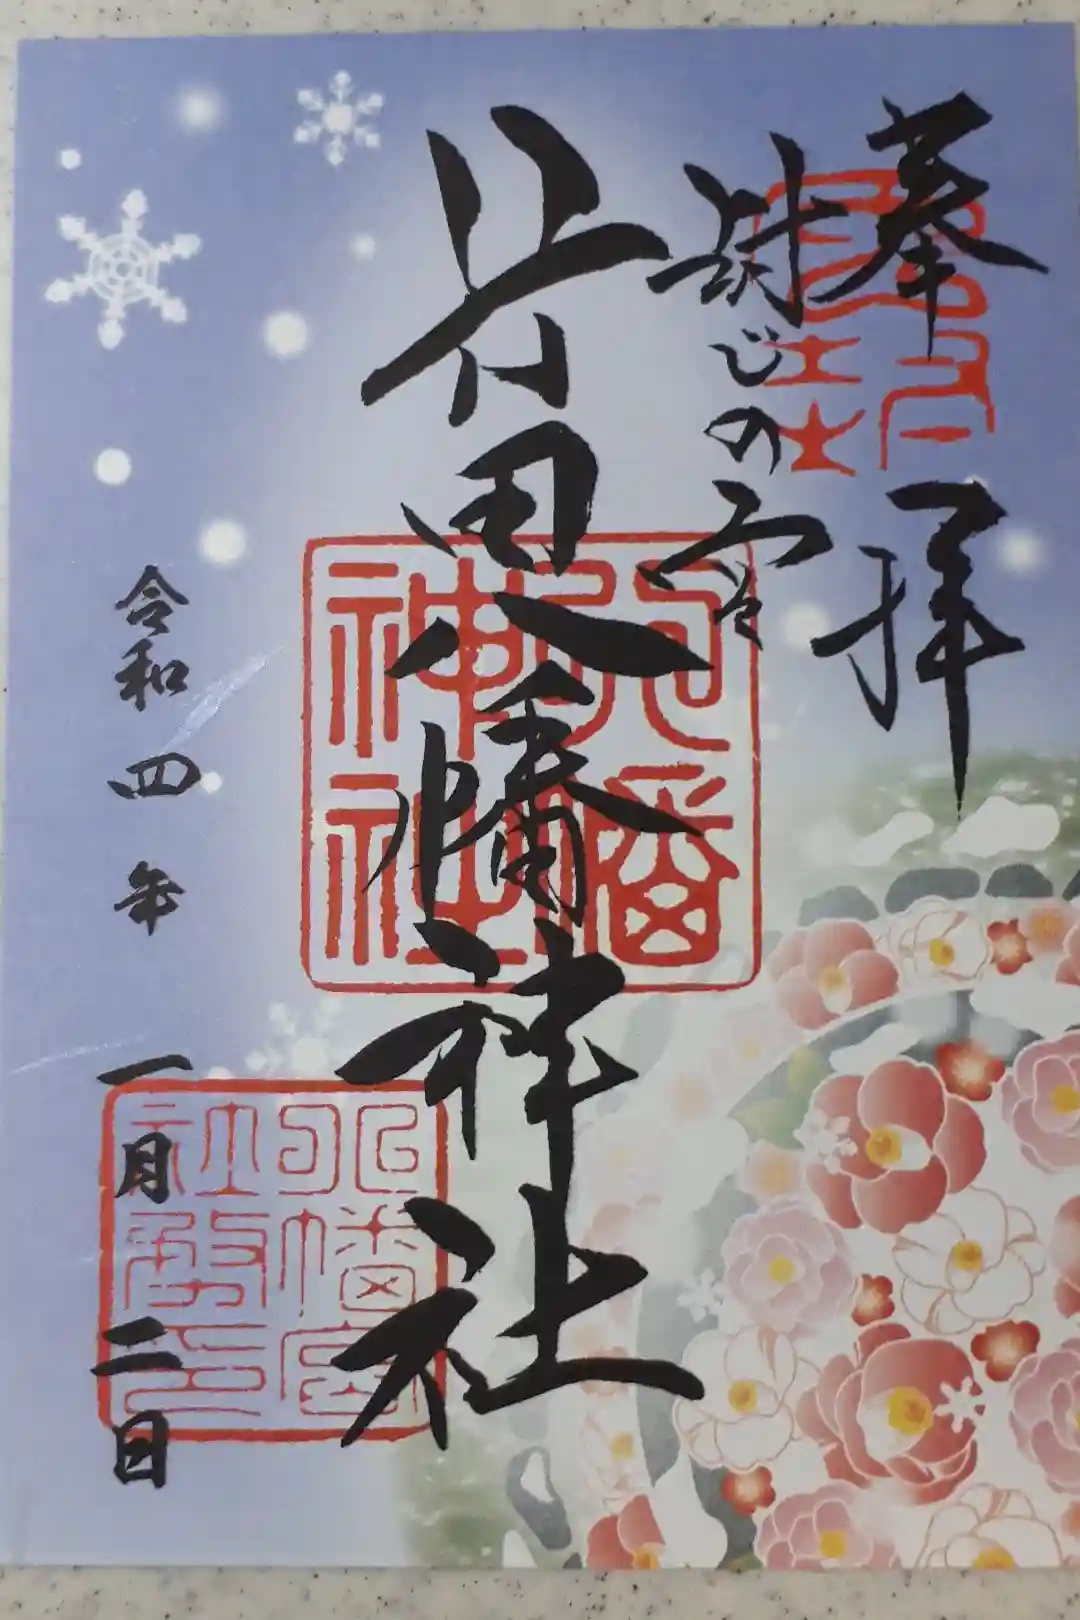 奉拝
封じの宮
田八幡神社
八幡
神社
令和四年一月二日
八幡宮
社務印